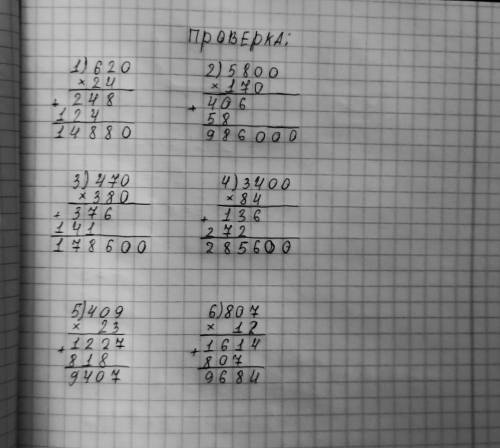 ПРОВЕРКА:
1) 620
× 24
+ 248
124
14880
2) 5800
× 170
+ 406
58
986000
3) 470
× 380
+ 376
141
178600
4) 3400
× 84
+ 136
272
285600
5) 409
× 23
+ 1227
818
9407
6) 807
× 12
+ 1614
807
9684